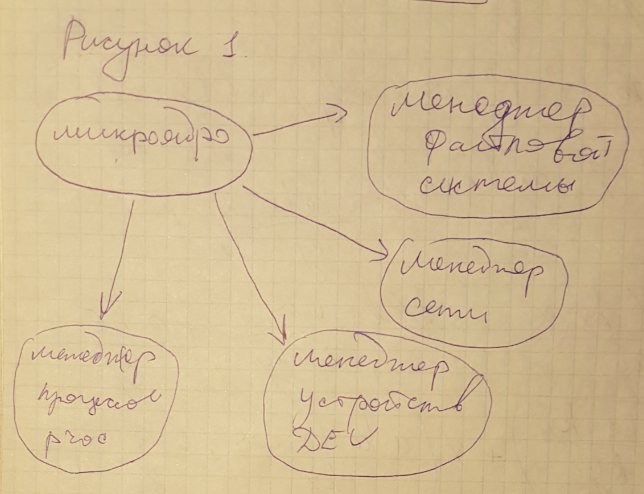 Рисунок 1.
микроядро
менеджер
файловой
системы
менеджер
сети
менеджер
процессов
менеджер
устройств
DEV